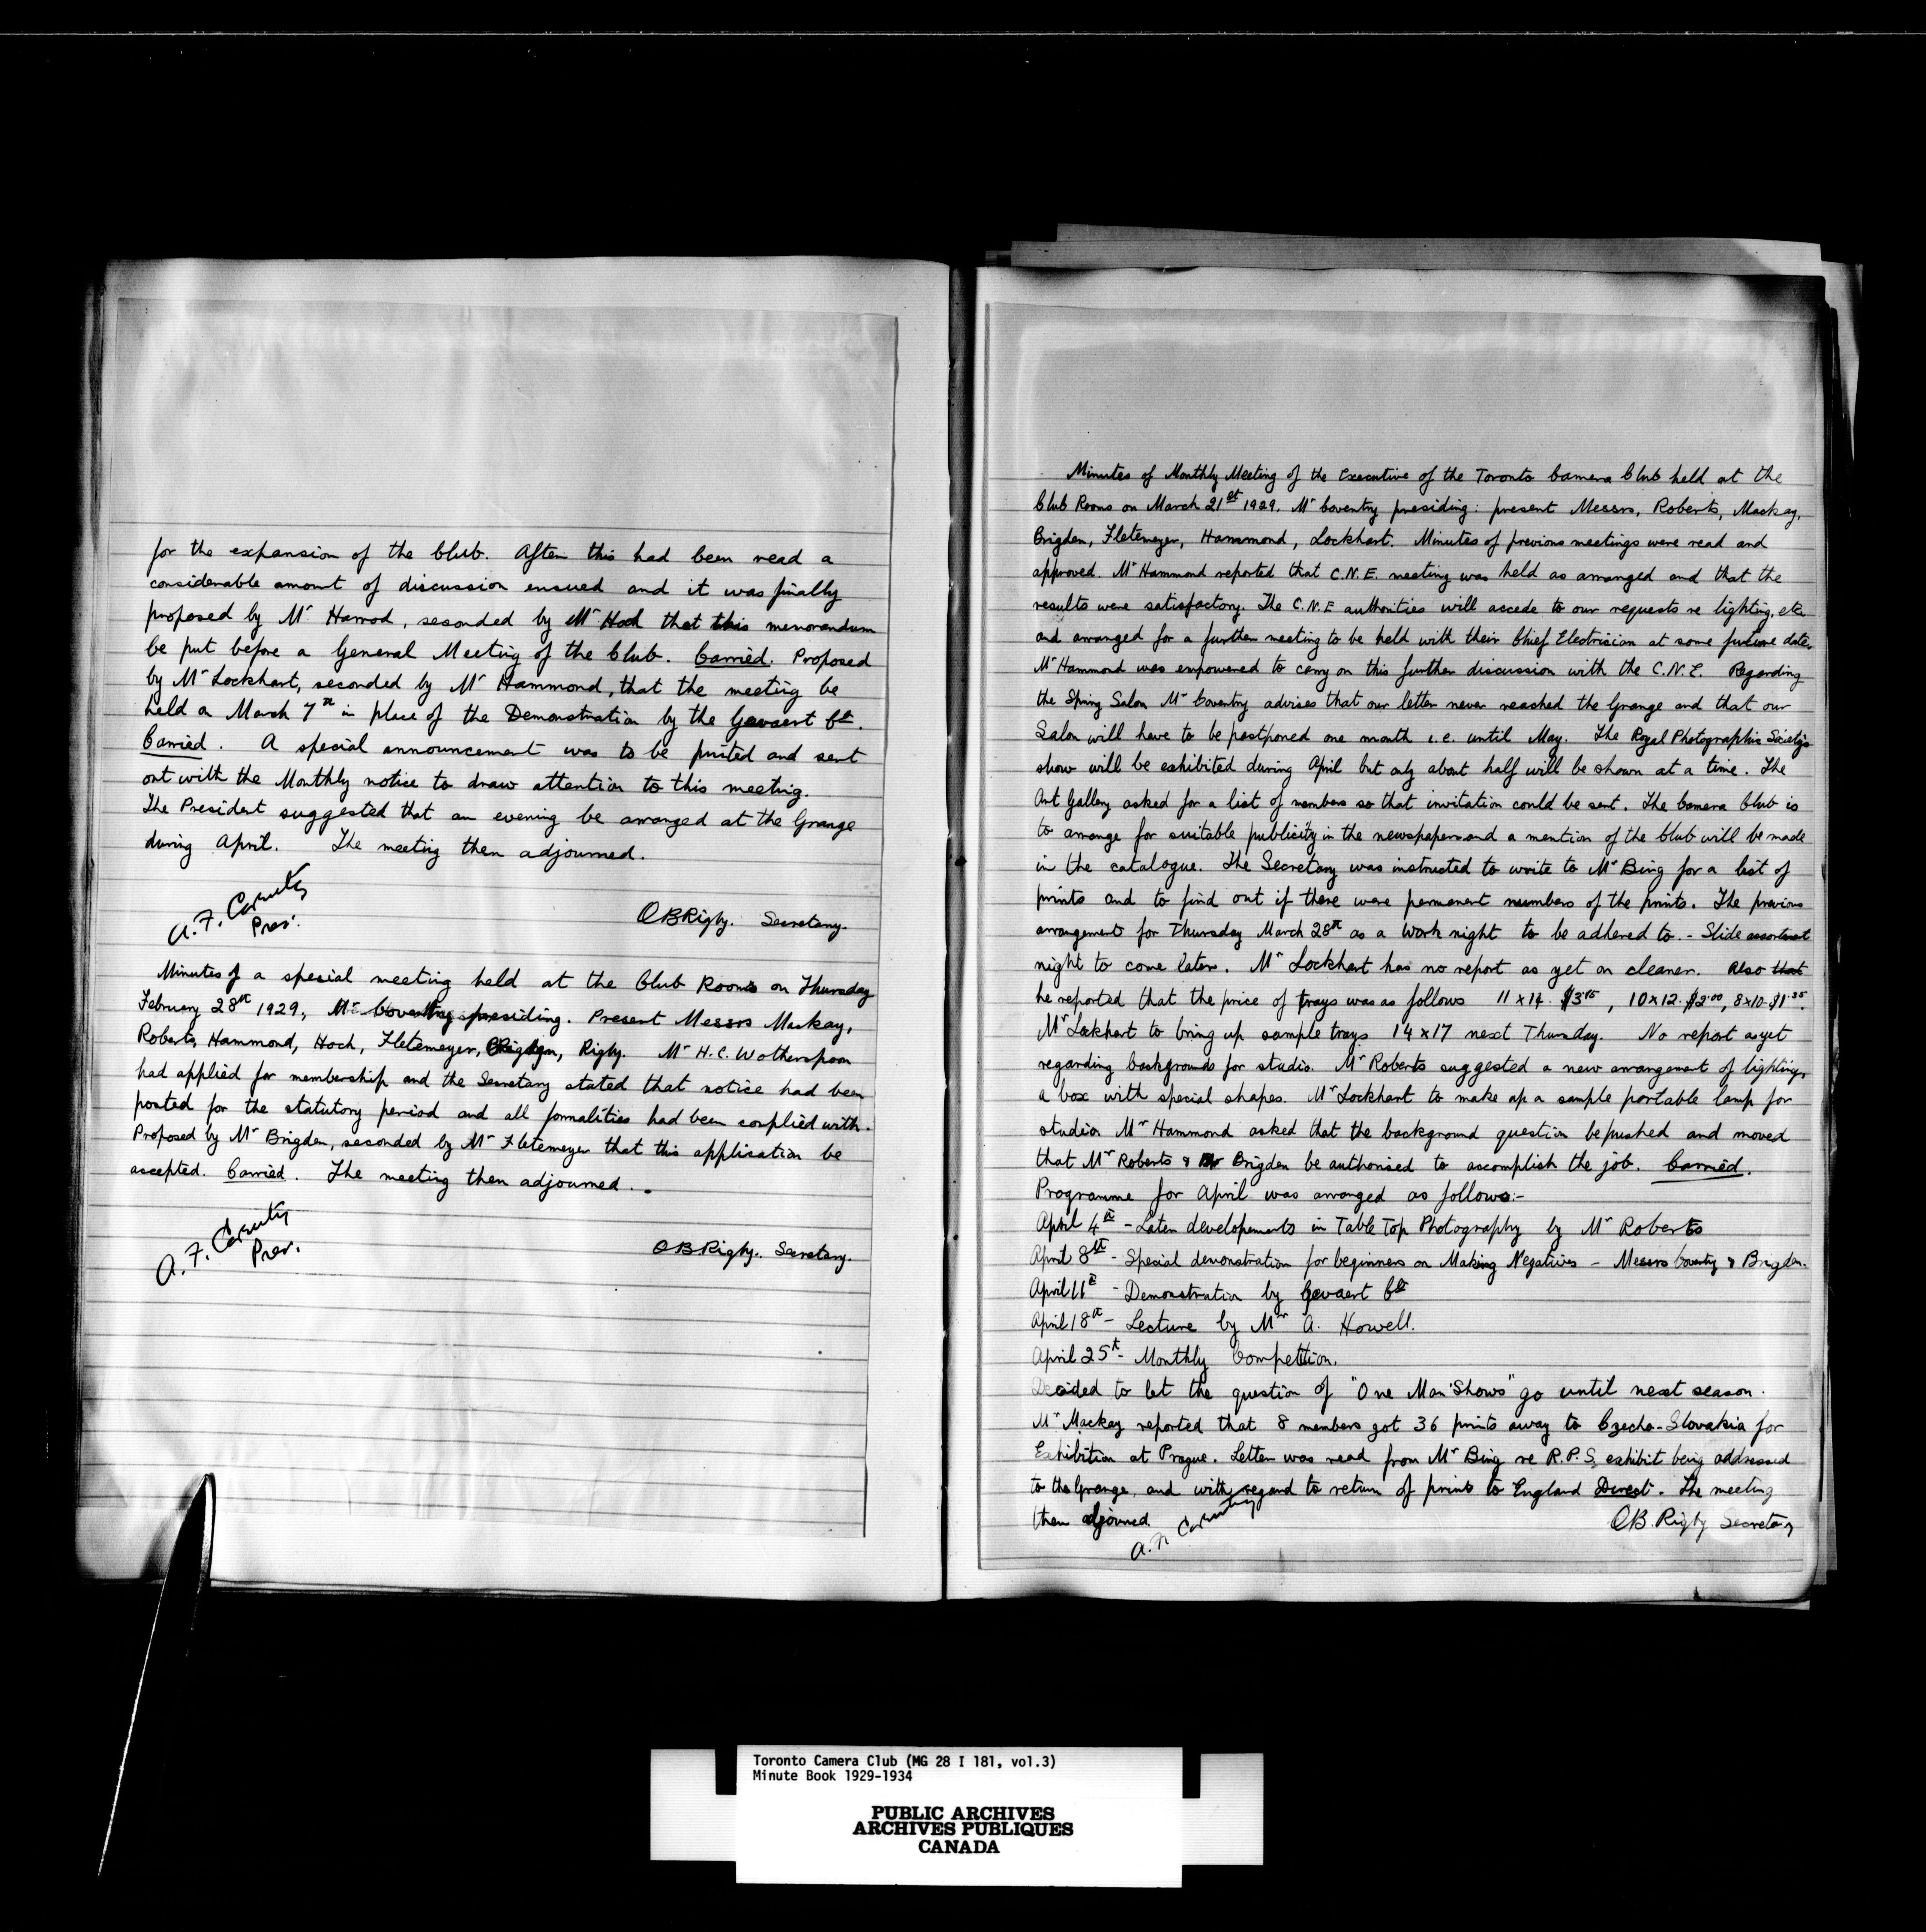 for the expansion of the Club. After this had been read a
considerable amount of discussion ensued and it was finally
proposed by Mr Harrod, seconded by Mr Hoch that this memorandum
be put before a General Meeting of the Club. Carried. Proposed
by Mr Lockhart, seconded by Mr Hammond, that the meeting be
held on March 7th in place of the Demonstration by the Gevaert Co.
Carried. A special announcement was to be printed and sent
out with the Monthly notice to draw attention to this meeting.
The President suggested that an evening be arranged at the Grange
during April. The meeting then adjourned.
A. F. Coventry
Pres.
OBRigby. Secretary.
Minutes of a special meeting held at the Club Rooms on Thursday
February 28th 1929, Mr Coventry presiding. Present Messrs Mackay,
Roberts, Hammond, Hoch, Fletemeyer, Brigden, Rigby. Mr H.C. Wotherspoon
had applied for membership and the Secretary stated that notice had been
posted for the statutory period and all formalities had been complied with.
Proposed by Mr Brigden, seconded by Mr Fletemeyer that this application be
accepted. Carried. The meeting then adjourned.
A. F. Coventry
Pres.
OBRigby. Secretary.
Minutes of Monthly Meeting of the Executive of the Toronto Camera Club held at the
Club Rooms on March 21st 1929. Mr Coventry presiding: present Messrs, Roberts, Mackay,
Brigden, Fletemeyer, Hammond, Lockhart. Minutes of previous meetings were read and
approved. Mr Hammond reported that C.N.E. meeting was held as arranged and that the
results were satisfactory. The C.N.E authorities will accede to our requests re lighting, etc.
and arranged for a further meeting to be held with their Chief Electrician at some future date.
Mr Hammond was empowered to carry on this further discussion with the C.N.E. Regarding
the Spring Salon Mr Coventry advises that our letter never reached the Grange and that our
Salon will have to be postponed one month i.e. until May. The Royal Photographic Society's
show will be exhibited during April but only about half will be shown at a time. The
Art Gallery asked for a list of members so that invitation could be sent. The Camera Club is
to arrange for suitable publicity in the newspapers and a mention of the Club will be made
in the catalogue. The Secretary was instructed to write to Mr Bing for a list of
prints and to find out if there were permanent numbers of the prints. The previous
arrangement for Thursday March 28th as a work night to be adhered to. - Slide
night to come later. Mr Lockhart has no report as yet on cleaner. Also that
he reported that the price of trays was as follows 11 x 14. , 10 x 12. $2.00, 8 x 10 - $1.35.
Mr Lockhart to bring up sample trays 14 x 17 next Thursday. No report as yet
regarding backgrounds for studio. Mr Roberts suggested a new arrangement of lighting,
a box with special shapes. Mr Lockhart to make up a sample portable lamp for
studio. Mr Hammond asked that the background question be pushed and moved
that Mr Roberts & Mr Brigden be authorised to accomplish the job. Carried.
Programme for April was arranged as follows:-
April 4th - Later developements in Table Top Photography by Mr Roberts
April 8th - Special demonstration for beginners on Making Negatives - Messrs Coventry & Brigden.
April 11th - Demonstration by Gevaert Co
April 18th - Lecture by Mr A. Howell.
April 25th - Monthly Competition.
Decided to let the question of "One Man Shows" go until next season.
Mr Mackay reported that 8 members got 36 prints away to Czecho-Slovakia for
Exhibition at Prague. Letter was read from Mr Bing re R.P.S. exhibit being addressed
to the Grange, and with regard to return of prints to England Direct. The meeting
then adjourned.
A. F. Coventry
OB. Rigby Secretary
Toronto Camera Club (MG 28 I 181, vol.3)
Minute Book 1929-1934
PUBLIC ARCHIVES
ARCHIVES PUBLIQUES
CANADA